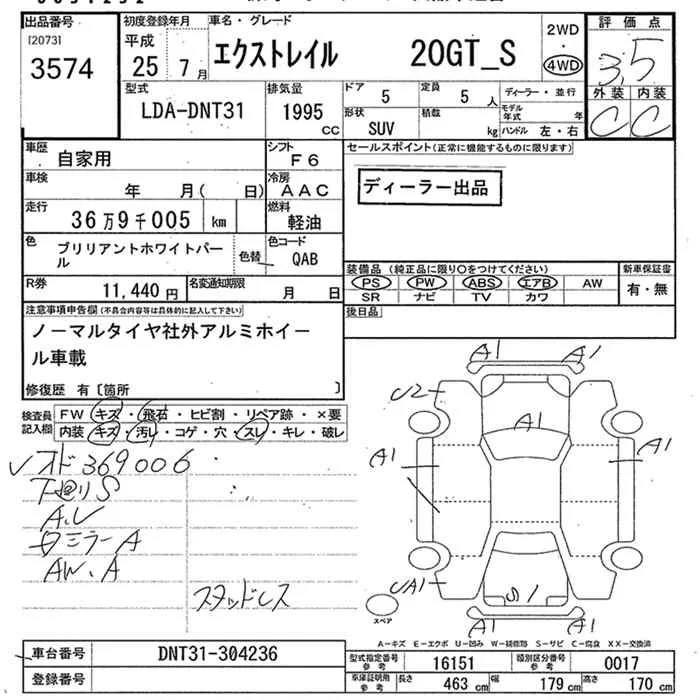 出品番号
[2073]
3574
初度登録年月
平成
25 7月
車名・グレード
エクストレイル 20GT_S
2WD
・
4WD
評価点
3.5
外装 内装
C C
型式
LDA-DNT31
排気量
1995
CC
ドア 5
定員 5 人
形状
SUV
積載
kg
ディーラー・並行
モデル年式 年
ハンドル 左・右
車歴
自家用
シフト
F6
車検
年 月( 日)
冷房
AAC
走行
36万9千005 km
燃料
軽油
色
ブリリアントホワイトパール
色替
色コード
QAB
R券
11,440円
名変通知期限
月 日
セールスポイント(正常に機能するものに限ります)
ディーラー出品
装備品 (純正品に限り○をつけてください)
PS PW ABS エアB AW
SR ナビ TV カワ
新車保証書
有・無
後日品
注意事項申告欄(不具合内容等は具体的に記入して下さい)
ノーマルタイヤ社外アルミホイー
ル車載
修復歴 有〔箇所 〕
検査員記入欄
FW キズ・飛石・ヒビ割・リペア跡・×要
内装 キズ・汚れ・コゲ・穴・スレ・キレ・破レ
369006
下廻りS
A.U
ミラーA
AW.A
スタッドレス
A1 A1
U2
A1
A1
A1
UA1
S1
A1 A1
スペア
A-キズ E-エクボ U-凹み W-補修跡 S-サビ C-腐食 XX-交換済
車台番号
DNT31-304236
登録番号
型式指定番号参考
16151
類別区分番号参考
0017
車庫証明用参考
長さ 463 cm 幅 179 cm 高さ 170 cm